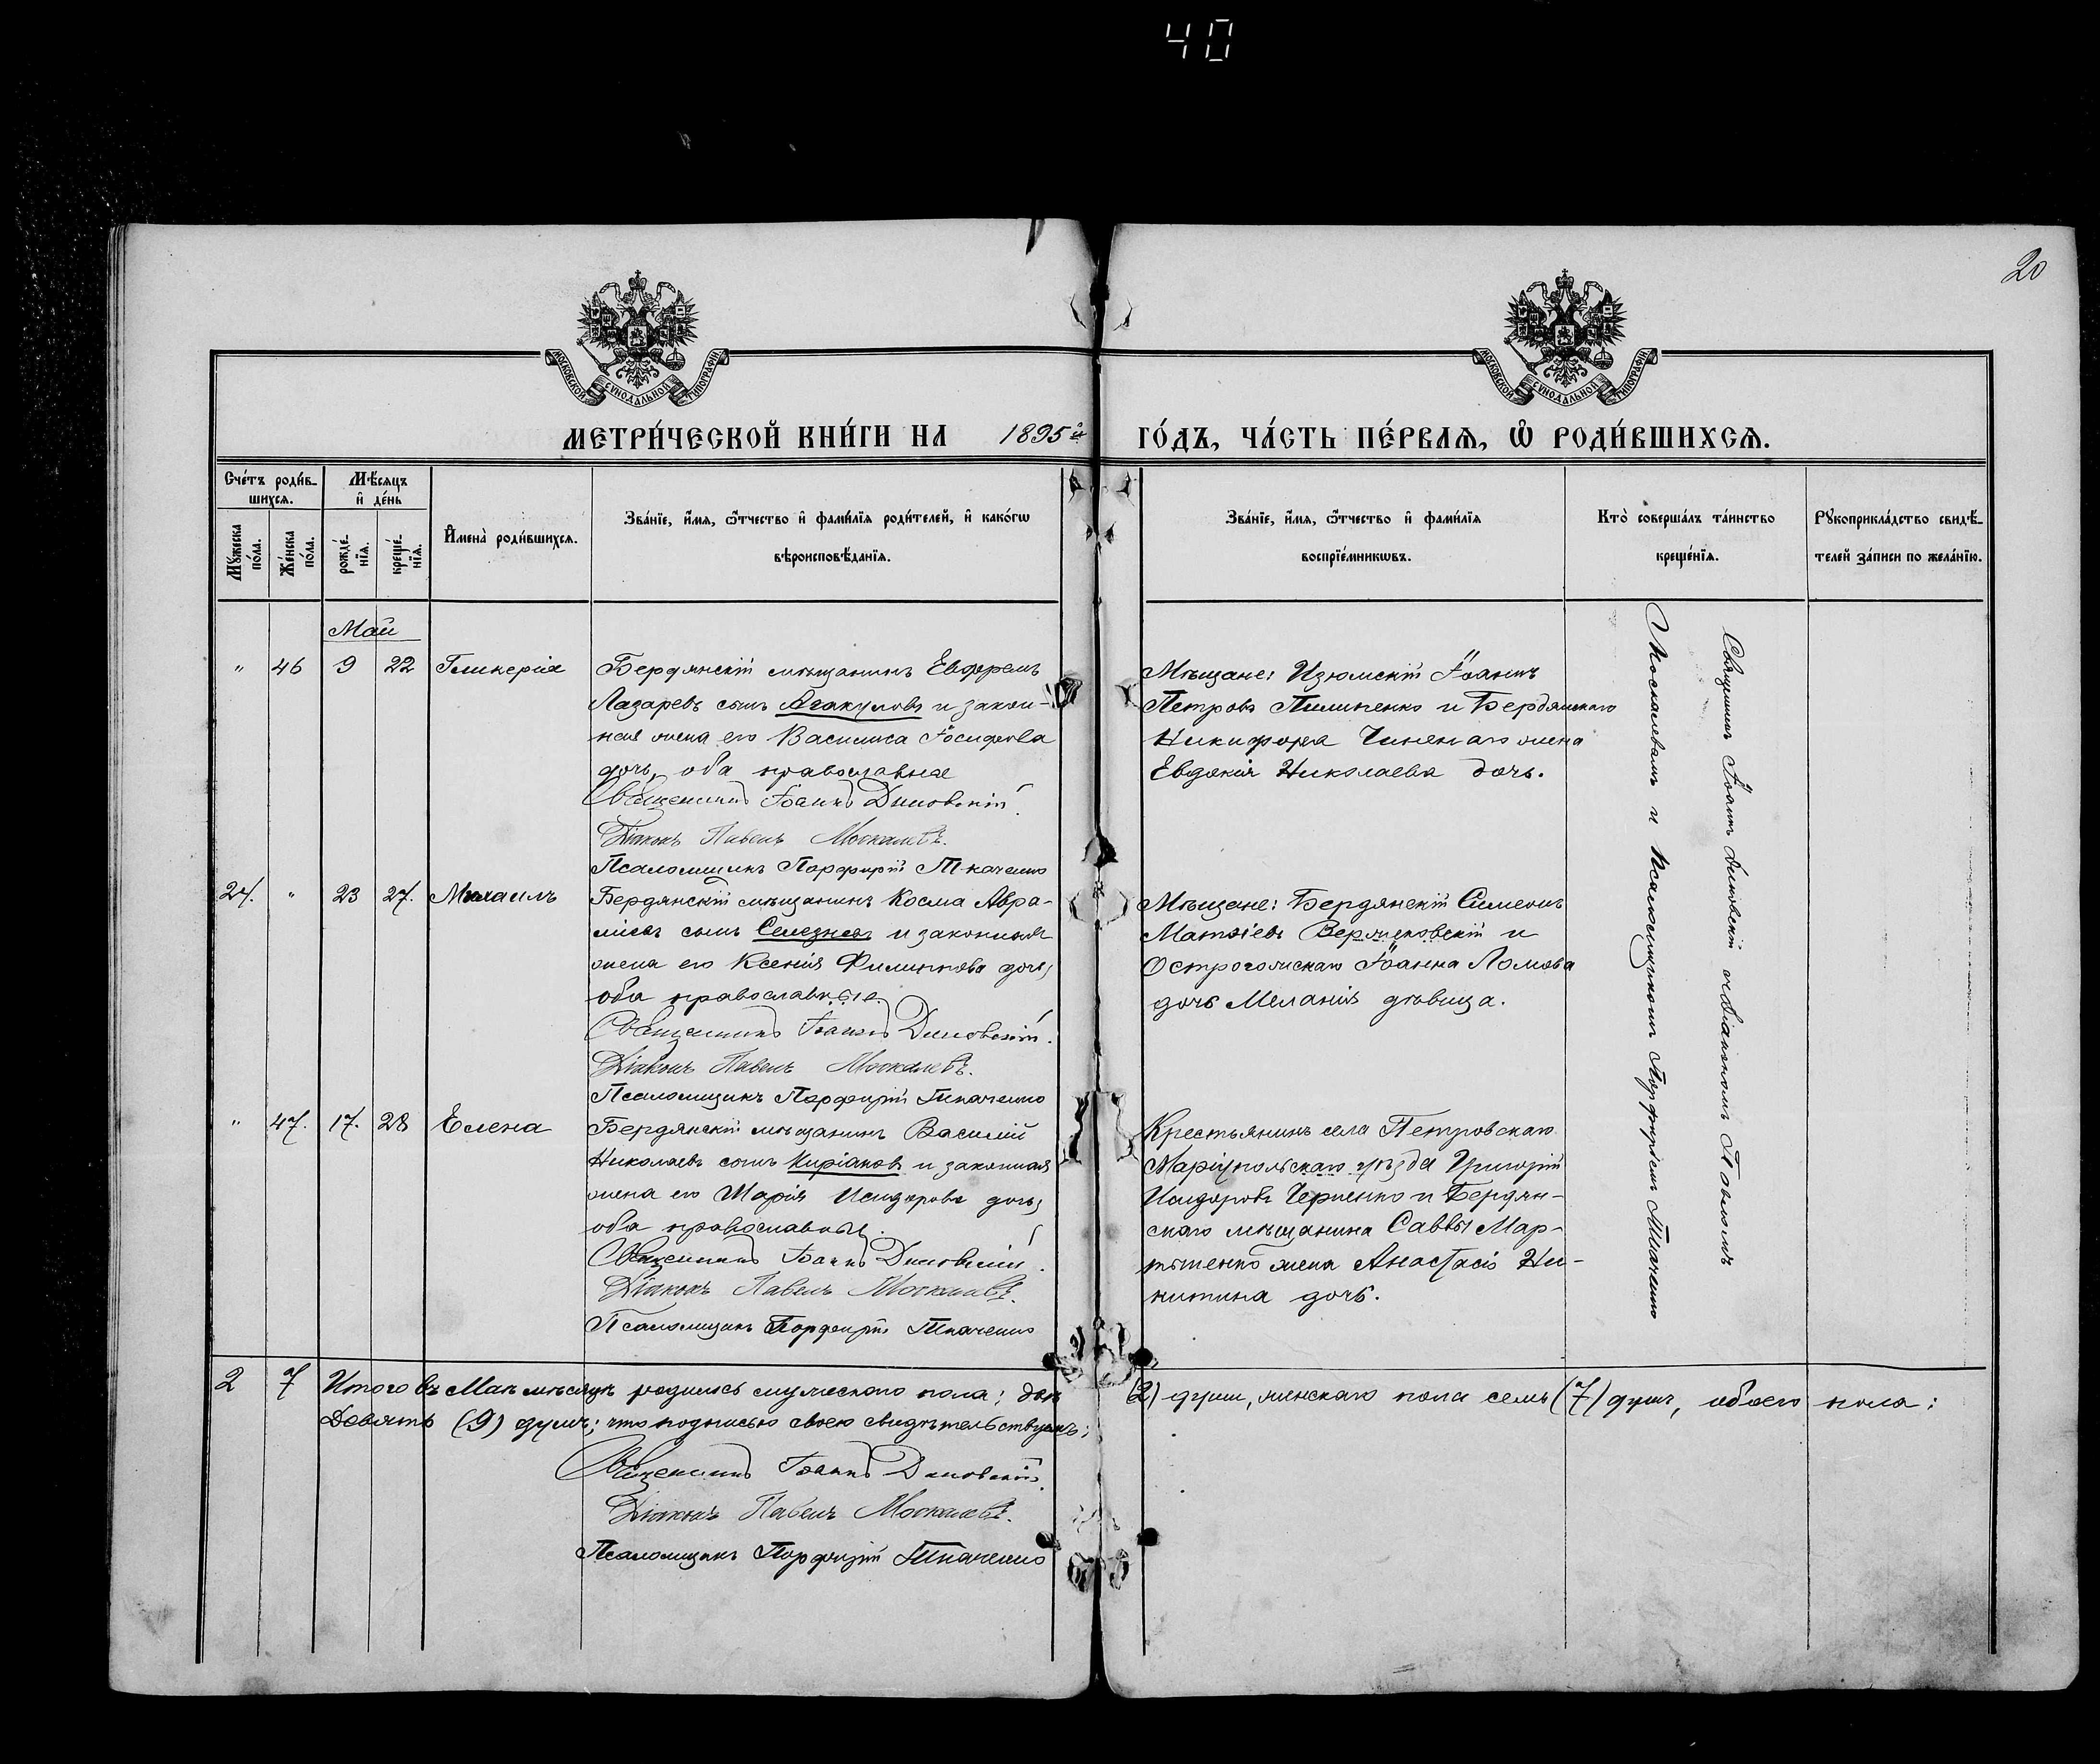 40
20
МОСКОВСКОЙ СѴНОДАЛЬНОЙ ТИПОГРАФІИ
МОСКОВСКОЙ СѴНОДАЛЬНОЙ ТИПОГРАФІИ
МЕТРИ́ЧЕСКОЙ КНИ́ГИ НА 1895й ГО́ДЪ, ЧА́СТЬ ПЕ́РВАѦ, Ѡ РОДИ́ВШИХСѦ.
Сче́тъ роди́в-
шихсѧ.
Мꙋ́жеска по́ла.
Же́нска по́ла.
Мѣ́сѧцъ
и҆ де́нь
рожде́-
нїѧ.
креще́-
нїѧ.
И҆мена̀ роди́вшихсѧ.
Зва́нїе, и҆́мѧ, ѻ҆́тчество и҆ фами́лїѧ роди́телей, и҆ како́гѡ
вѣроисповѣ́данїѧ.
Зва́нїе, и҆́мѧ, ѻ҆́тчество и҆ фами́лїѧ
воспрїе́мникѡвъ.
Кто̀ соверша́лъ та́инство
креще́нїѧ.
Рꙋкоприкла́дство свидѣ́-
телей за́писи по жела́нїю.
Май
" 46 9 22 Гликерія
Бердянскій мѣщанинъ Евфремъ
Лазаревъ сынъ Агакуловъ и закон-
ная жена его Василиса Іосифова
дочь, оба православные
Священникъ Іоаннъ Димовскій.
Діаконъ Павелъ Москалевъ.
Псаломщикъ Порфирій Ткаченко
Мѣщане: Изюмскій Іоаннъ
Петровъ Пилипенко и Бердянскаго
Никифора жена
Евдокія Николаева дочь.
24. " 23 27. Михаилъ
Бердянскій мѣщанинъ Косма Авра-
міевъ сынъ Селезневъ и законная
жена его Ксенія Филиппова дочь,
оба православные.
Священникъ Іоаннъ Димовскій.
Діаконъ Павелъ Москалевъ.
Псаломщикъ Порфирій Ткаченко
Мѣщане: Бердянскій Симеонъ
Матѳіевъ Вермековскій и
Острогожскаго Іоанна Ломова
дочь Меланія дѣвица.
" 47. 17. 28 Елена
Бердянскій мѣщанинъ Василій
Николаевъ сынъ Киріаковъ и законная
жена его Марія Исидорова дочь,
оба православные.
Священникъ Іоаннъ Димовскій.
Діаконъ Павелъ Москалевъ.
Псаломщикъ Порфирій Ткаченко
Крестьянинъ села Петровскаго
Маріупольскаго уѣзда Григорій
Исидоровъ Черненко и Бердян-
скаго мѣщанина Саввы Мар-
тыненко жена Анастасія Ни-
китина дочь.
Священникъ Іоаннъ Димовскій съ діакономъ Павломъ
Москалевымъ и псаломщикомъ Порфиріемъ Ткаченко
2 7 Итого въ Маѣ мѣсяцѣ родилось мужескаго пола: двѣ (2) души, женскаго пола семь (7) душъ, обоего пола:
Девять (9) душъ; что подписью своею свидѣтельствуемъ:
Священникъ Іоаннъ Димовскій.
Діаконъ Павелъ Москалевъ.
Псаломщикъ Порфирій Ткаченко